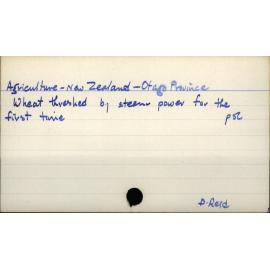 Agriculture - New Zealand - Otago Province
Wheat threshed by steam power for the
first time p52
D. Reid